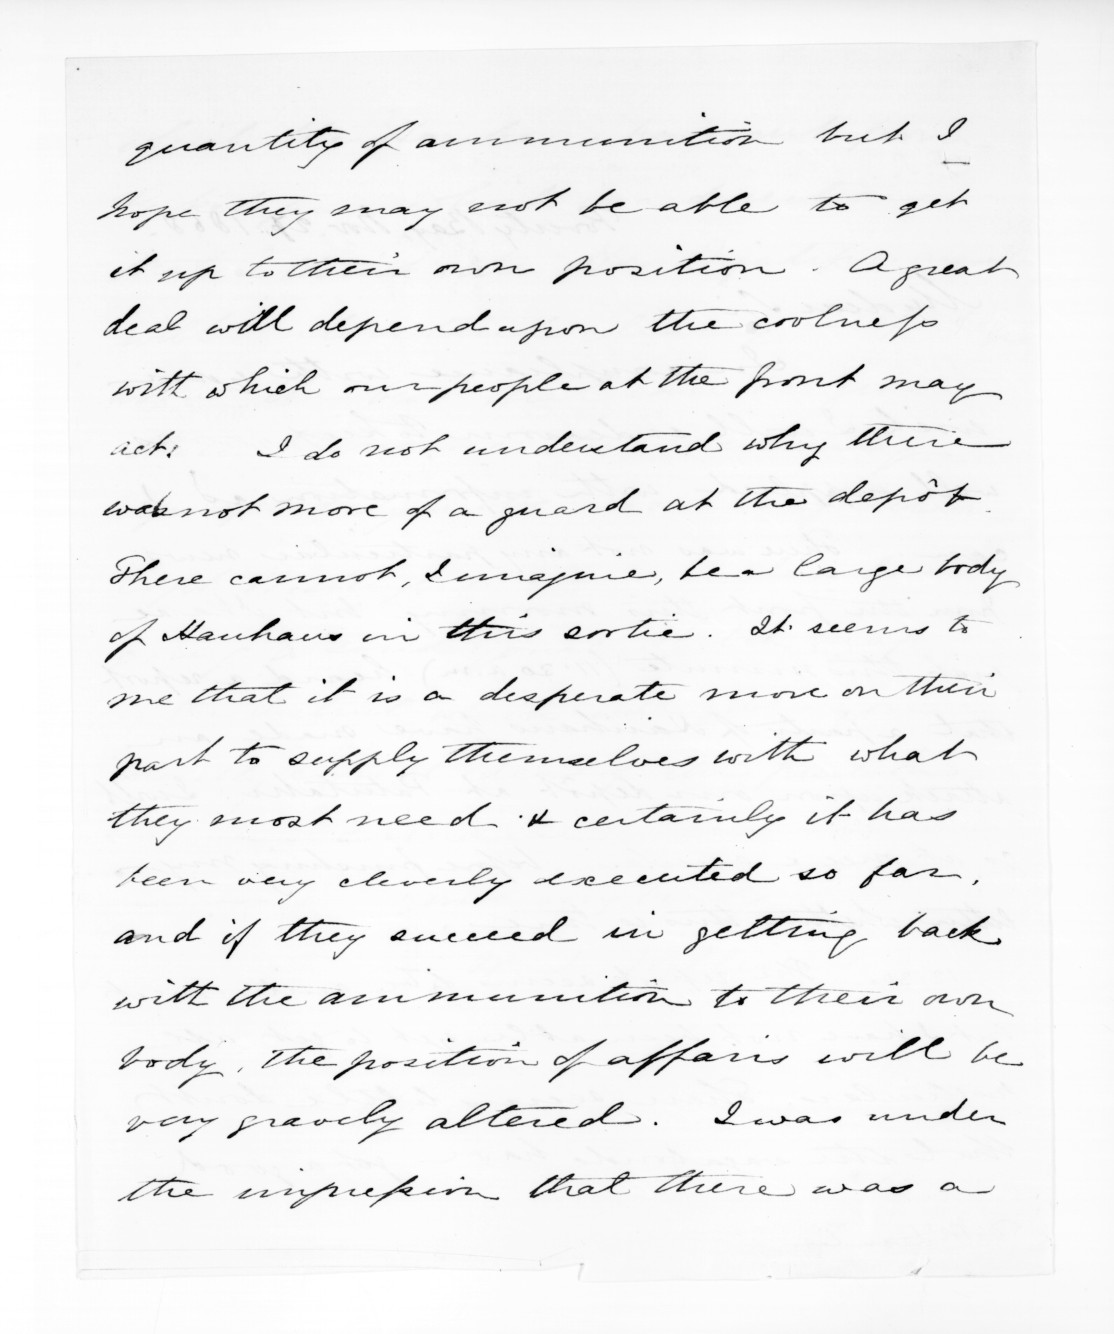 quantity of ammunition but I
hope they may not be able to get
it up to their own position. A great
deal will depend upon the coolness
with which our people at the front may
act. I do not understand why there
was not more of a guard at the depôt.
There cannot, I imagine, be a large body
of Hauhaus in this sortie. It seems to
me that it is a desperate move on their
part to supply themselves with what
they most need & certainly it has
been very cleverly executed so far,
and if they succeed in getting back
with the ammunition to their own
body, the position of affairs will be
very gravely altered. I was under
the impression that there was a